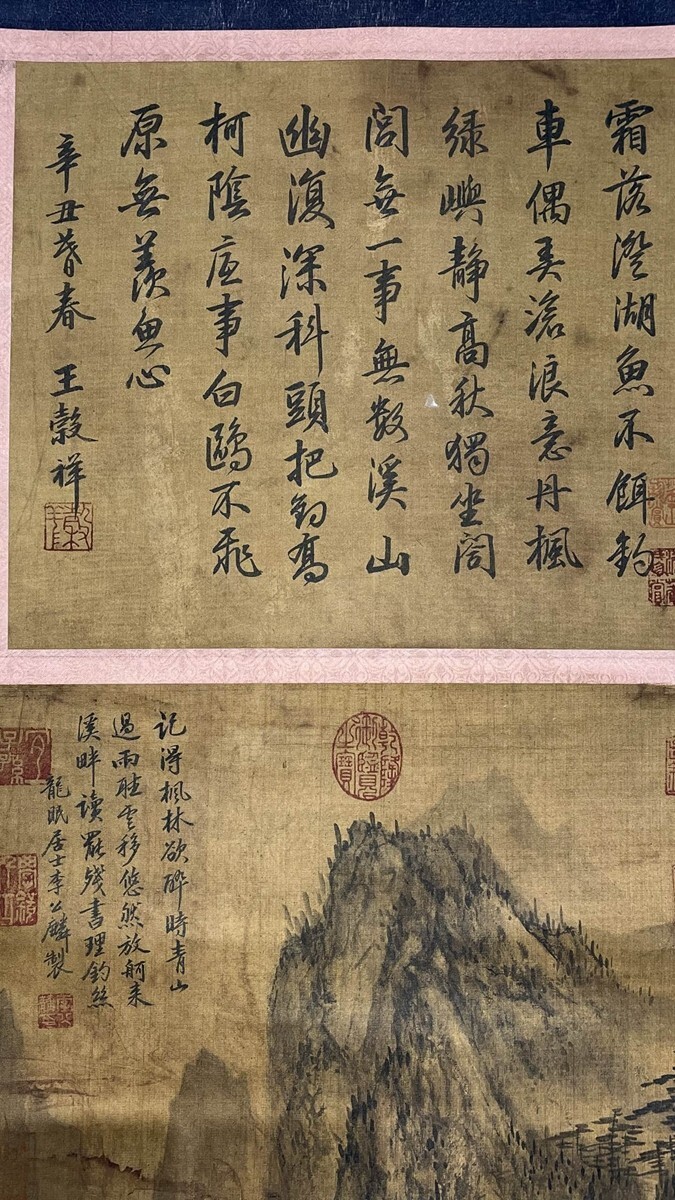 霜落澄湖魚不餌釣
車偶弄滄浪意丹楓
緑嶼静髙秋獨坐閤
閤無一事無数溪山
幽復深科頭把釣髙
柯隂底事白鷗不飛
原無羨魚心
辛丑暮春 王榖祥
乾隆御覽之寶
記得楓林欲醉時青山
過雨睦雲移悠然放舸来
溪畔讀罷殘書理釣絲
龍眠居士李公麟製